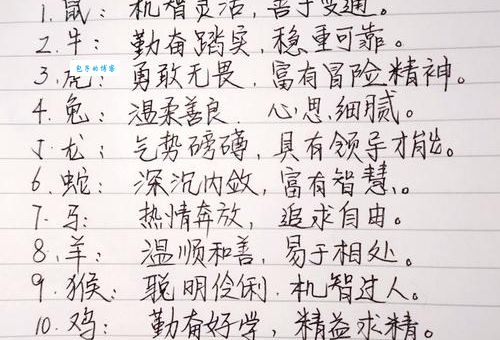 1.鼠：机智灵活，善于变通。
2.牛：勤奋踏实，稳重可靠。
包子的博客
3.虎：勇敢无畏，富有冒险精神。
4.兔：温柔善良．心思细腻。
5.龙：气势磅礴，具有领导才能。
6.蛇：深沉内敛，富有智慧。
7.马：热情奔放，追求自由。
8.羊：温顺和善，易于相处。
9.猴：聪明伶俐．机智过人。
10.鸡：勤奋好学，精益求精。